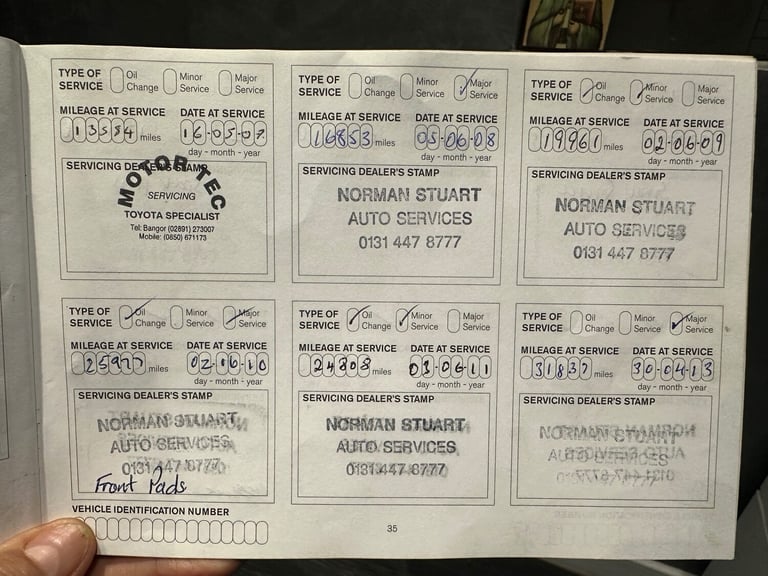 TYPE OF SERVICE Oil Change Minor Service Major Service
MILEAGE AT SERVICE DATE AT SERVICE
13584 miles 16-05-07
day - month - year
SERVICING DEALER'S STAMP
MOTOR TEC
SERVICING
TOYOTA SPECIALIST
Tel: Bangor (02891) 273007
Mobile: (0850) 671173
TYPE OF SERVICE Oil Change Minor Service Major Service
MILEAGE AT SERVICE DATE AT SERVICE
16853 miles 05-06-08
day - month - year
SERVICING DEALER'S STAMP
NORMAN STUART
AUTO SERVICES
0131 447 8777
TYPE OF SERVICE Oil Change Minor Service Major Service
MILEAGE AT SERVICE DATE AT SERVICE
19961 miles 02-06-09
day - month - year
SERVICING DEALER'S STAMP
NORMAN STUART
AUTO SERVICES
0131 447 8777
TYPE OF SERVICE Oil Change Minor Service Major Service
MILEAGE AT SERVICE DATE AT SERVICE
miles
day - month - year
SERVICING DEALER'S STAMP
NORMAN STUART
AUTO SERVICES
0131 447 8777
Front Pads
TYPE OF SERVICE Oil Change Minor Service Major Service
MILEAGE AT SERVICE DATE AT SERVICE
24808 miles 03-06-11
day - month - year
SERVICING DEALER'S STAMP
NORMAN STUART
AUTO SERVICES
0131 447 8777
TYPE OF SERVICE Oil Change Minor Service Major Service
MILEAGE AT SERVICE DATE AT SERVICE
31837 miles 30-04-13
day - month - year
SERVICING DEALER'S STAMP
NORMAN STUART
AUTO SERVICES
VEHICLE IDENTIFICATION NUMBER
35